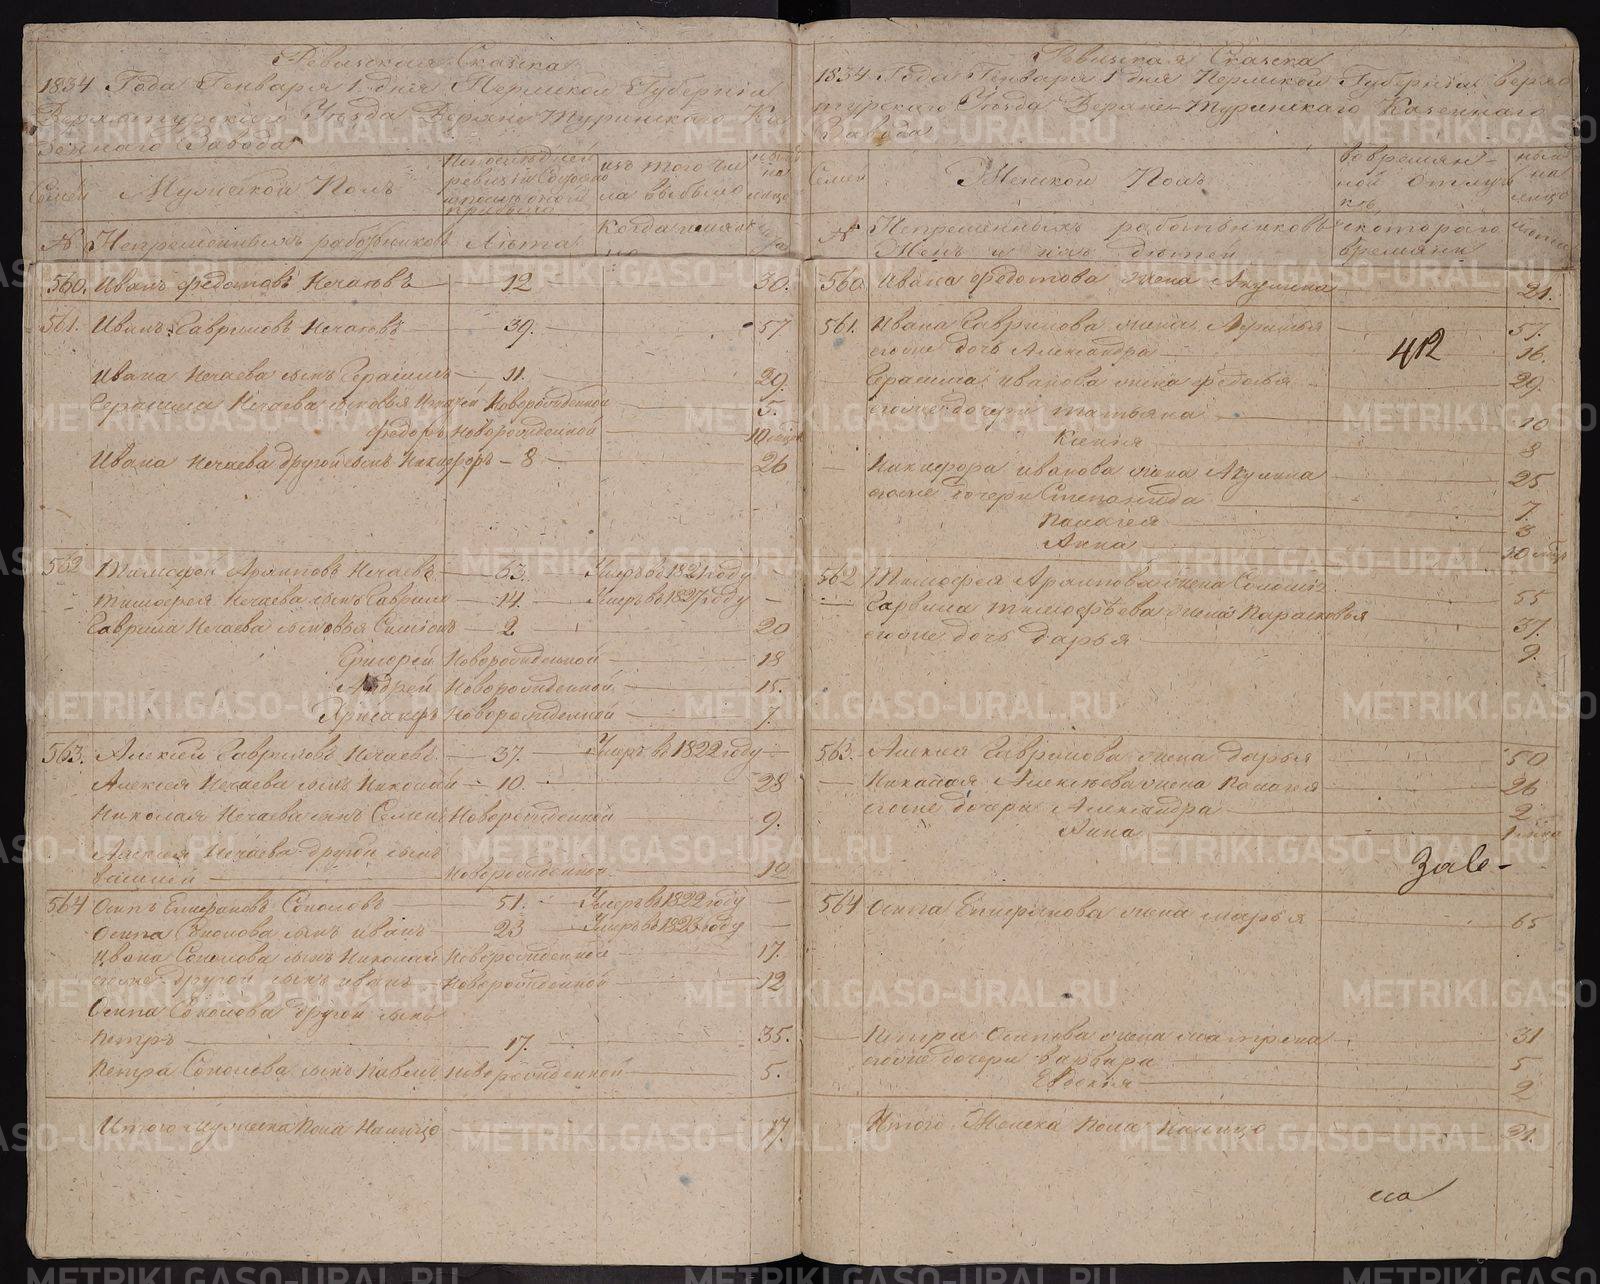 Ревизская Сказка
1834 Года Генваря 1 дня Пермской Губерніи
Верхотурскаго Уезда Верхне Туринскаго Ка
зеннаго Завода
Семьи
Мужескои Полъ
изъ того чи
сла выбыло
на
лицо
№ Непременныхъ работниковъ
Лѣта
Когда именно
560. Иванъ Федотовъ Нечаевъ 12 30.
561. Иванъ Гавриловъ Нечаевъ 39. 57
Ивана Нечаева сынъ Герасимъ 11. 29.
Герасима Нечаева сыновья Новорожденной 5.
Федоръ Новорожденной 10 мѣцов
Ивана Нечаева другой сынъ Никифоръ 8 26
562 Тимофей Архиповъ Нечаевъ 63. Умеръ въ 1821 году
Тимофея Нечаева сынъ Гаврила 14. Умеръ въ 1827 году
Гаврила Нечаева сыновья Симіонъ 2 20
Григорей Новорожденной 18
Андрей Новорожденной 15.
Хрисанфъ Новорожденной 7.
563. Алексей Гавриловъ Нечаевъ 37. Умеръ въ 1822 году
Алексея Нечаева сынъ Николай 10. 28
Николая Нечаева сынъ Семенъ Новорожденной 9.
Алексея Нечаева другой сынъ
Василей Новорожденной 10
564 Осипъ Епифановъ Соколовъ 51. Умеръ въ 1822 году
Осипа Соколова сынъ Иванъ 23 Умеръ въ 1823 году
Ивана Соколова сынъ Николай Новорожденной 17.
егоже другой сынъ Иванъ Новорожденной 12
Осипа Соколова другой сынъ
Петръ 17. 35.
Петра Соколова сынъ Павелъ Новорожденной 5.
Итого мужеска пола налицо 17.
Ревизская Сказка
1834 Года Генваря 1 дня Пермской Губерніи Верхо
турскаго Уезда Верхне Туринскаго Казеннаго
Завода
Семьи
Женской Полъ
во времян-
ной отлуч
кѣ,
на
лицо
№ Непременныхъ работниковъ
Жены и ихъ дѣтей
скотораго
времяни
560 Ивана Федотова жена Акулина 21.
561. Ивана Гаврилова жена 57.
412
егоже дочь Александра 16.
Герасима Иванова жена Федосья 29
егоже дочери Татьяна 10
Ксенія 8
Никифора Иванова жена Акулина 25
егоже дочери Степанида 7
Палагея 3
Анна 10 мѣц
562 Тимофея Архипова жена 55
Гаврила Тимофѣева жена Парасковья 37.
егоже дочь Дарья 9.
563. Алексея Гаврилова жена Дарья 50
Николая Алексѣева жена Палагея 26
егоже дочери Александра 2
Анна
Заве-
564 Осипа Епифанова жена Марья 65
Петра Осипова жена Матрона 31
егоже дочери Варвара 5
Евдокія 2
Итого Женска пола налицо 21.
METRIKI.GASO-URAL.RU